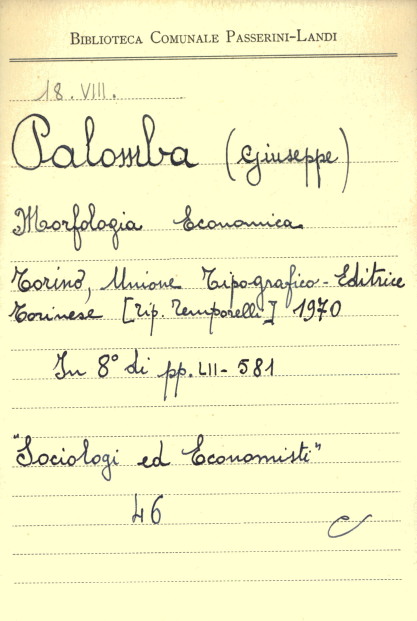 BIBLIOTECA COMUNALE PASSERINI-LANDI
18. VIII.
Palomba (Giuseppe)
Morfologia Economica
Torino, Unione Tipografico-Editrice
Torinese [Tip. Temporelli] 1970
In 8° di pp. LII-581
"Sociologi ed Economisti"
46